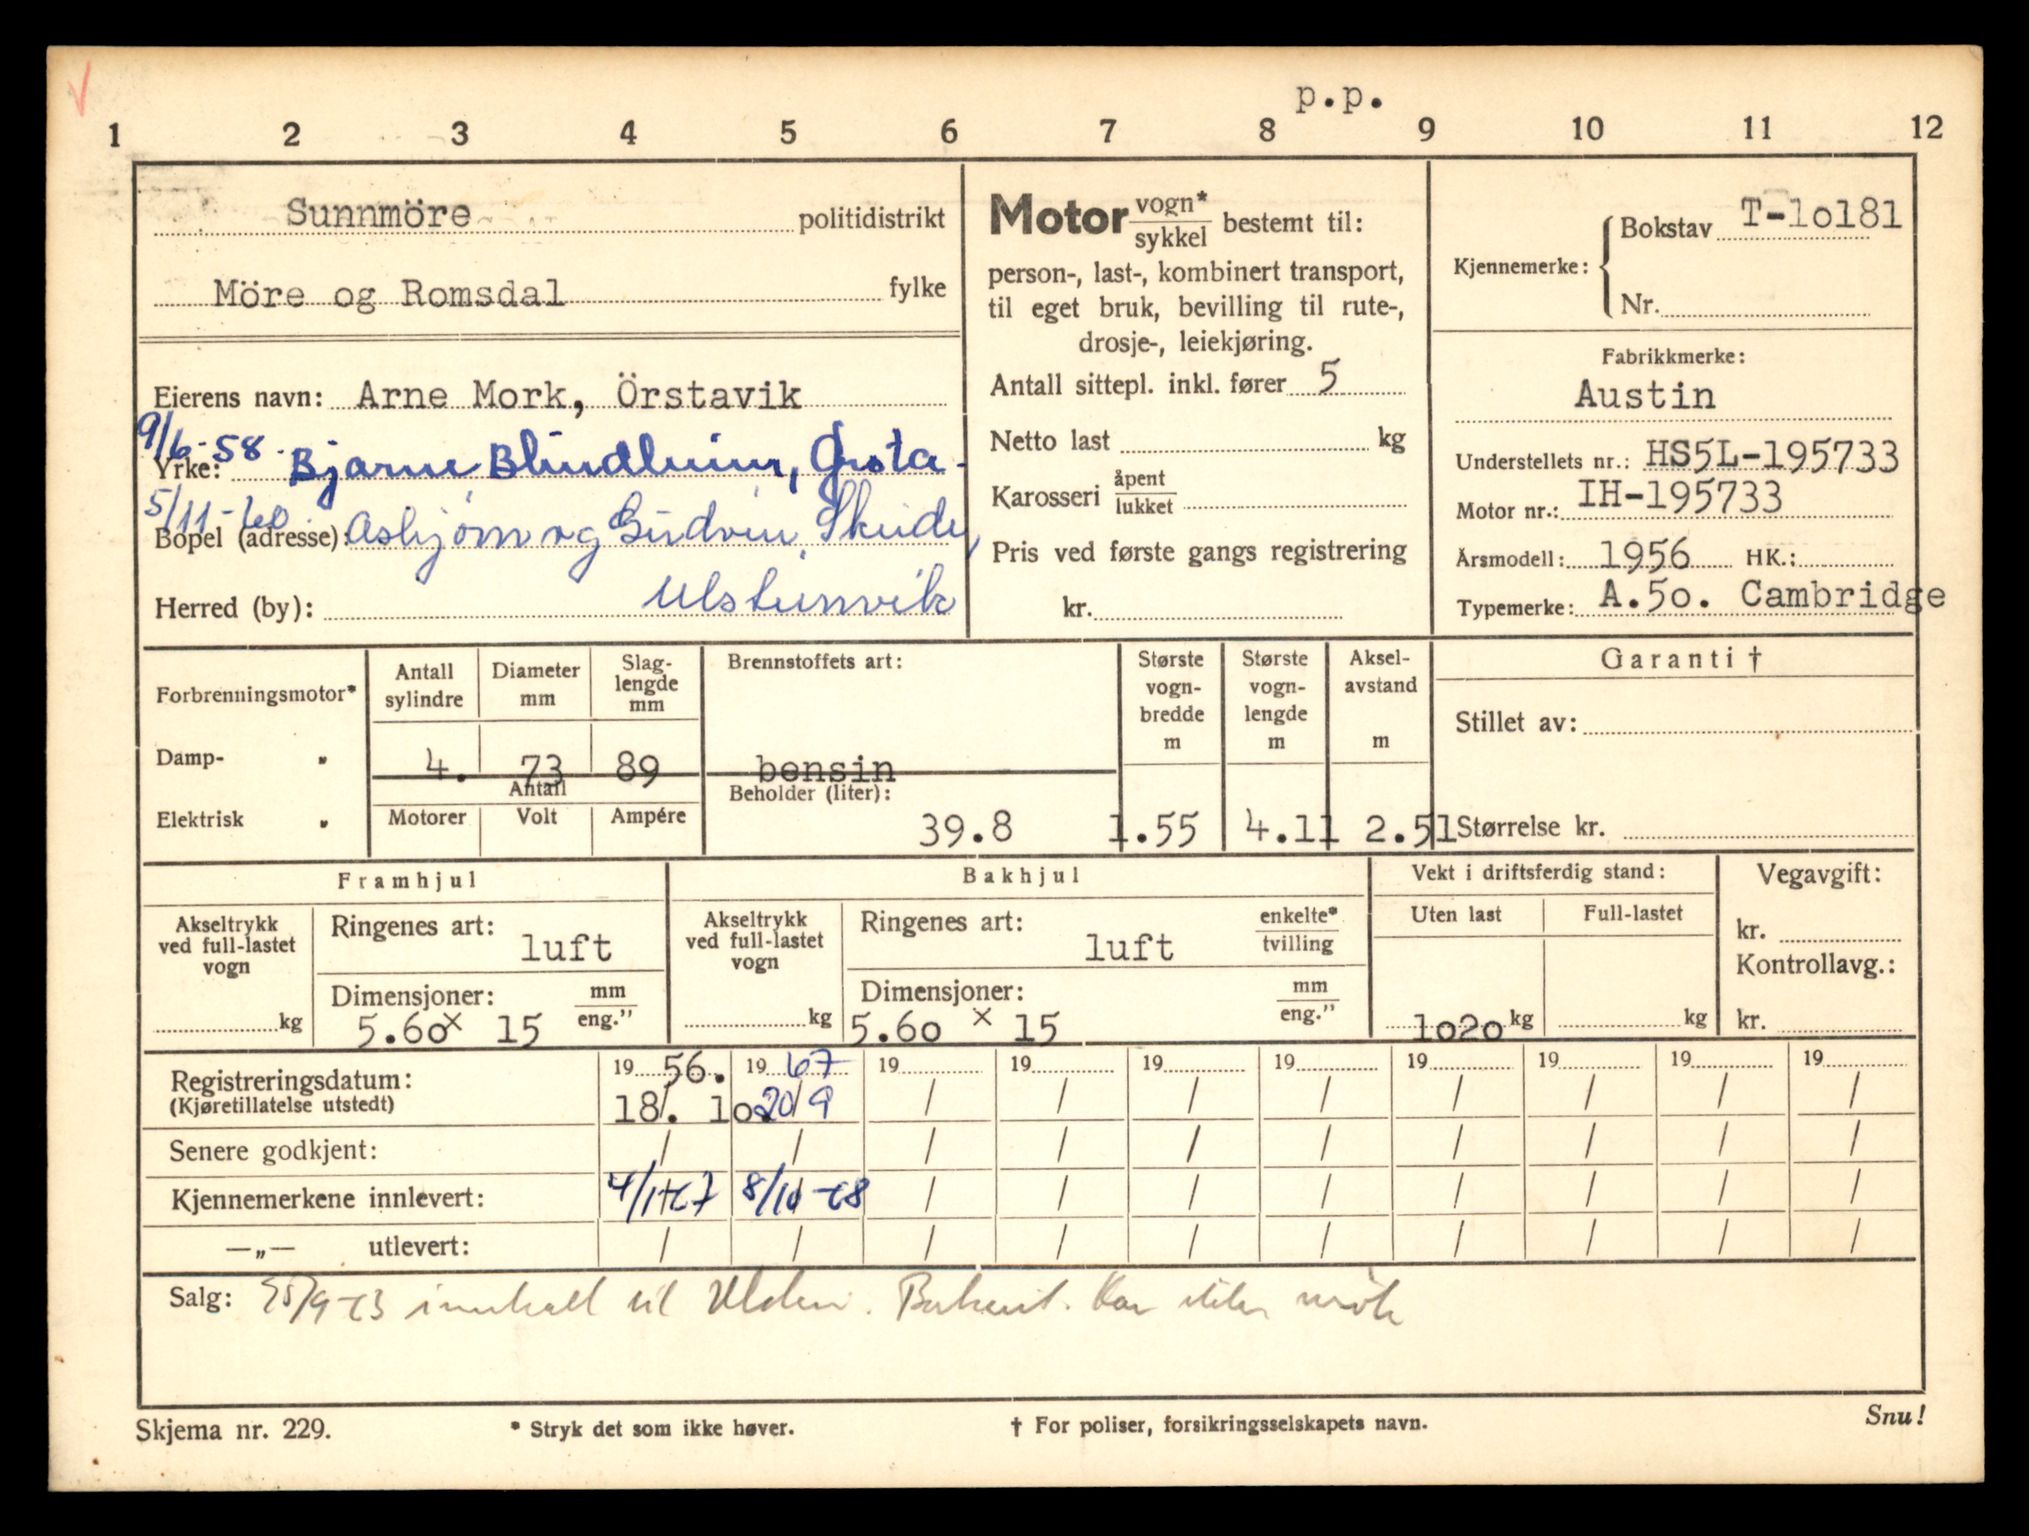 p.p.
1 2 3 4 5 6 7 8 9 10 11 12
Sunnmöre politidistrikt
Möre og Romsdal fylke
Eierens navn: Arne Mork, Örstavik
9/6-58. Bjarne Blindheim, Ørsta
Yrke:
5/11-60. Asbjørn og Gudrun
Bopel (adresse):
Herred (by): Ulsteinvik
Motor vogn* sykkel bestemt til:
person-, last-, kombinert transport,
til eget bruk, bevilling til rute-,
drosje-, leiekjøring.
Antall sittepl. inkl. fører 5
Netto last kg
Karosseri åpent lukket
Pris ved første gangs registrering
kr.
Kjennemerke: Bokstav T-10181
Nr.
Fabrikkmerke:
Austin
Understellets nr.: HS5L-195733
Motor nr.: IH-195733
Årsmodell: 1956 HK.:
Typemerke: A.50. Cambridge
Forbrenningsmotor*
Damp- "
Elektrisk "
Antall sylindre
Diameter mm
Slag-
lengde
mm
4. 73 89
Antall
Motorer Volt Ampére
Brennstoffets art:
bensin
Beholder (liter):
39.8
Største
vogn-
bredde
m
1.55
Største
vogn-
lengde
m
4.11
Aksel-
avstand
m
2.51
Garanti †
Stillet av:
Størrelse kr.
Framhjul
Akseltrykk
ved full-lastet
vogn
kg
Ringenes art:
luft
Dimensjoner: mm eng."
5.60 x 15
Bakhjul
Akseltrykk
ved full-lastet
vogn
kg
Ringenes art: enkelte* tvilling
luft
Dimensjoner: mm eng."
5.60 x 15
Vekt i driftsferdig stand:
Uten last Full-lastet
1020 kg kg
Vegavgift:
kr.
Kontrollavg.:
kr.
Registreringsdatum: 19 56. 19 67 19 19 19 19 19 19 19 19
(Kjøretillatelse utstedt) 18. 10. 20/9 / / / / / / / /
Senere godkjent: / / / / / / / / / /
Kjennemerkene innlevert: 4/1-67 8/10-68 / / / / / / / /
—„— utlevert: / / / / / / / / / /
Salg: innkalt til
Skjema nr. 229.
* Stryk det som ikke høver.
† For poliser, forsikringsselskapets navn.
Snu!